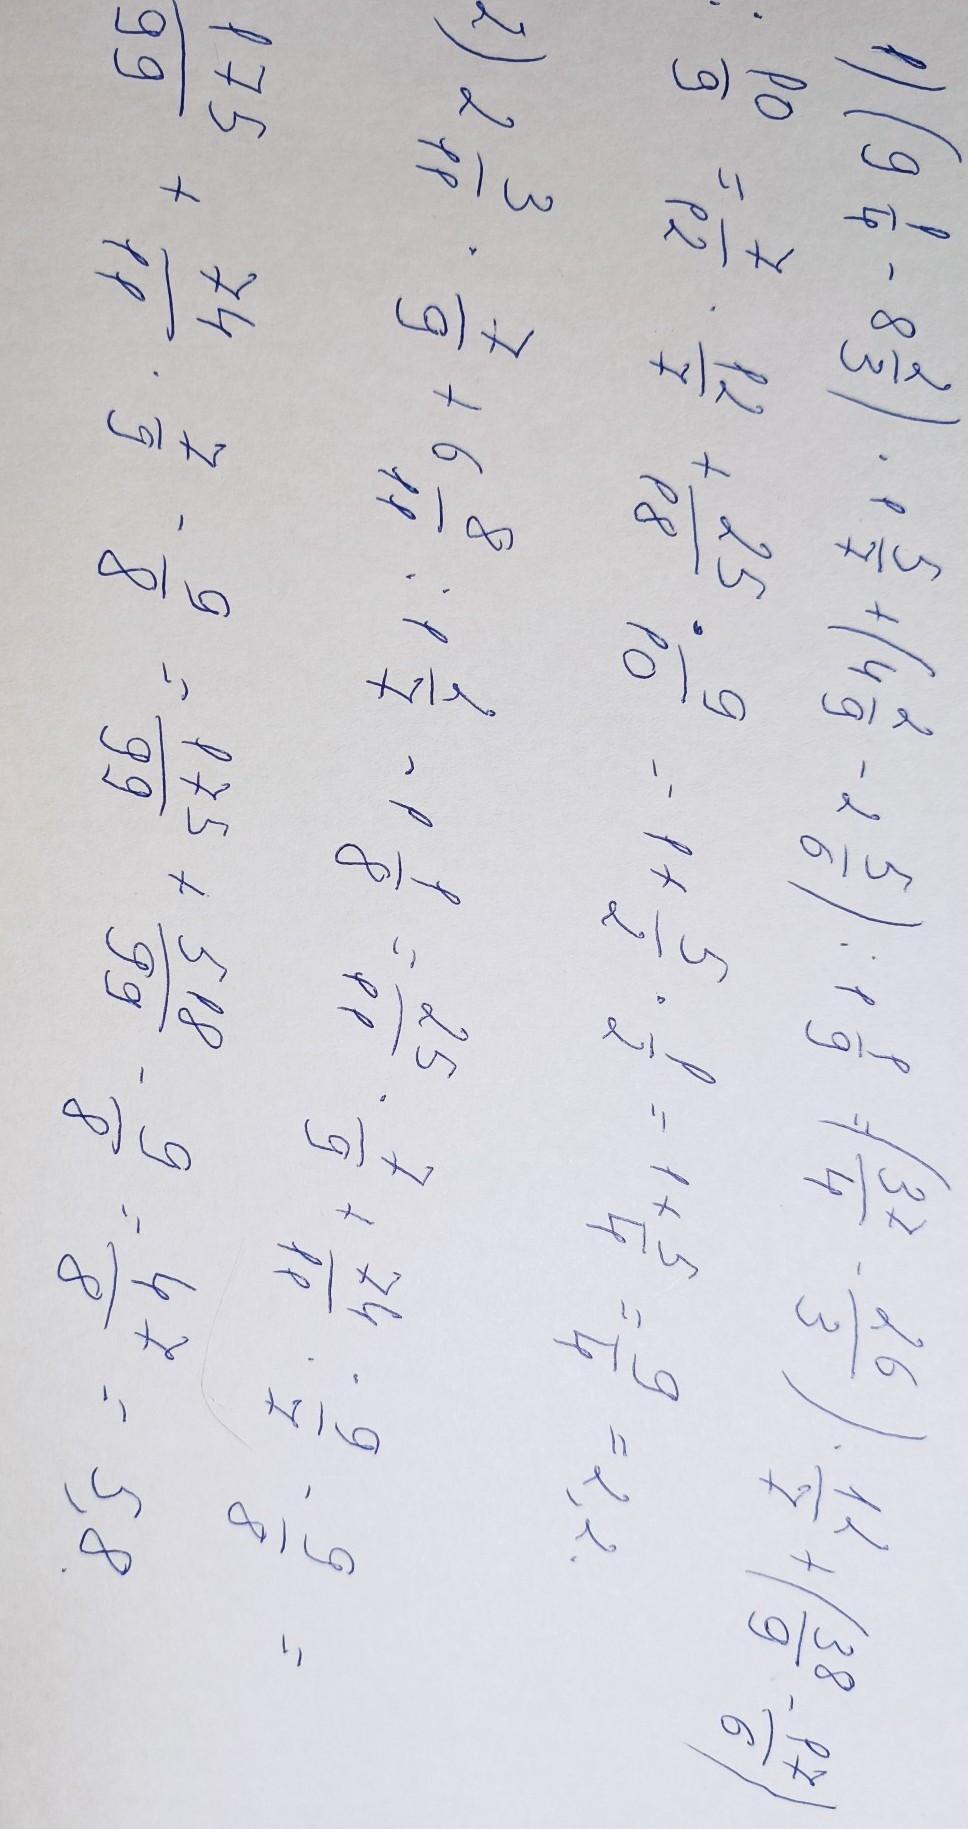 1) (9 1/4 - 8 2/3) · 1 5/7 + (4 2/9 - 2 5/6) : 1 1/9 = (37/4 - 26/3) · 12/7 + (38/9 - 17/6)
: 10/9 = 7/12 · 12/7 + 25/18 · 9/10 = 1 + 5/2 · 1/2 = 1 + 5/4 = 9/4 = 2,2.
2) 2 3/11 · 7/9 + 6 8/11 : 1 2/7 - 1 1/8 = 25/11 · 7/9 + 74/11 : 9/7 - 9/8 =
175/99 + 74/11 · 7/9 - 9/8 = 175/99 + 518/99 - 9/8 = 47/8 = 5,8.